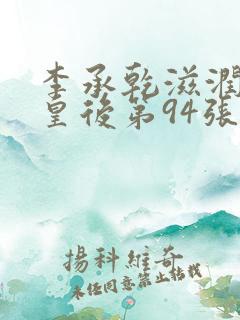 李承乾滋潤
皇後第94張
揚科維奇
未任同意禁止轉載